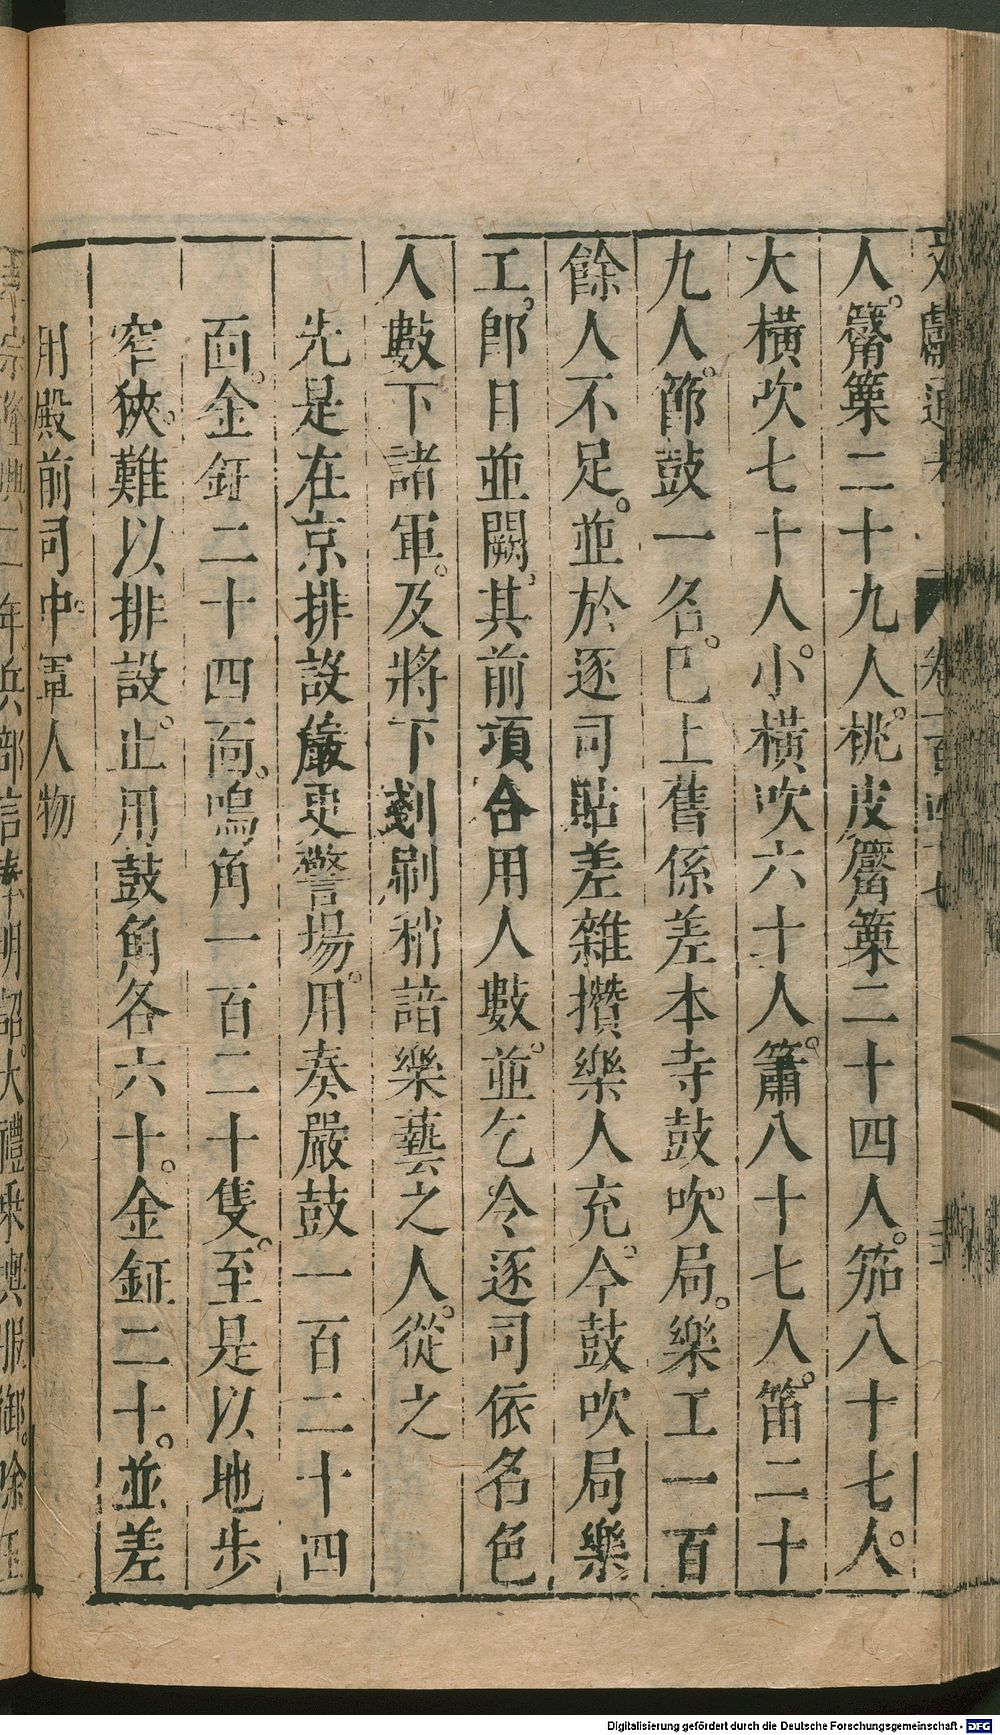 文獻通考 卷一百四十七 三
人。觱篥二十九人。桃皮觱篥二十四人。笳八十七人。
大橫吹七十人。小橫吹六十人。簫八十七人。笛二十
九人。節鼓一名。已上舊係差本寺鼓吹局。樂工一百
餘人不足。並於逐司貼差雜攢樂人充。今鼓吹局樂
工。即日並闕。其前項合用人數。並乞令逐司依名色
人數下諸軍。及將下剗刷稍諳樂藝之人。從之
先是在京排設嚴更警場。用奏嚴鼓一百二十四
面。金鉦二十四面。鳴角一百二十隻。至是以地步
窄狹。難以排設。止用鼓角各六十。金鉦二十。並差
用殿前司中軍人物
年兵部言 明詔。大禮乘輿服御。除玉
Digitalisierung gefördert durch die Deutsche Forschungsgemeinschaft - DFG